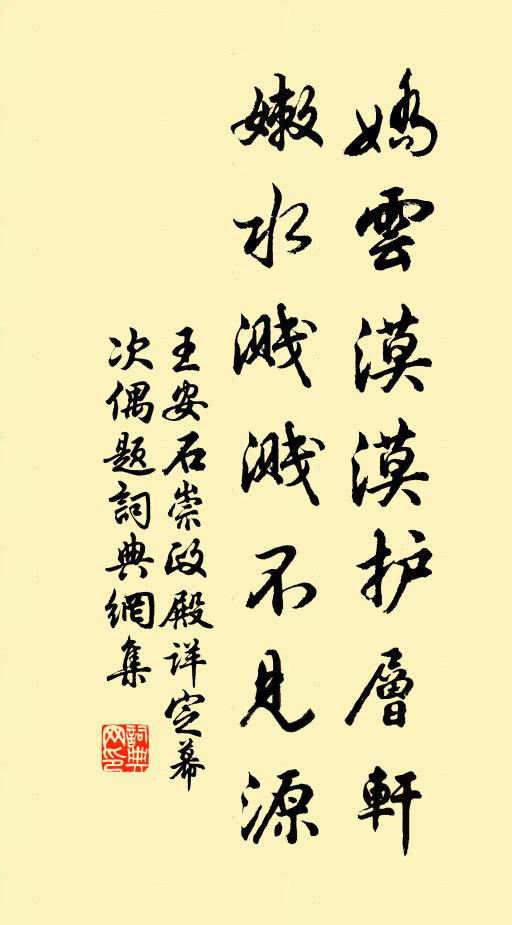 嬌雲漠漠护層軒
嫩水濺濺不見源
王安石崇政殿详定幕
次偶题詞典網集
詞典
网印